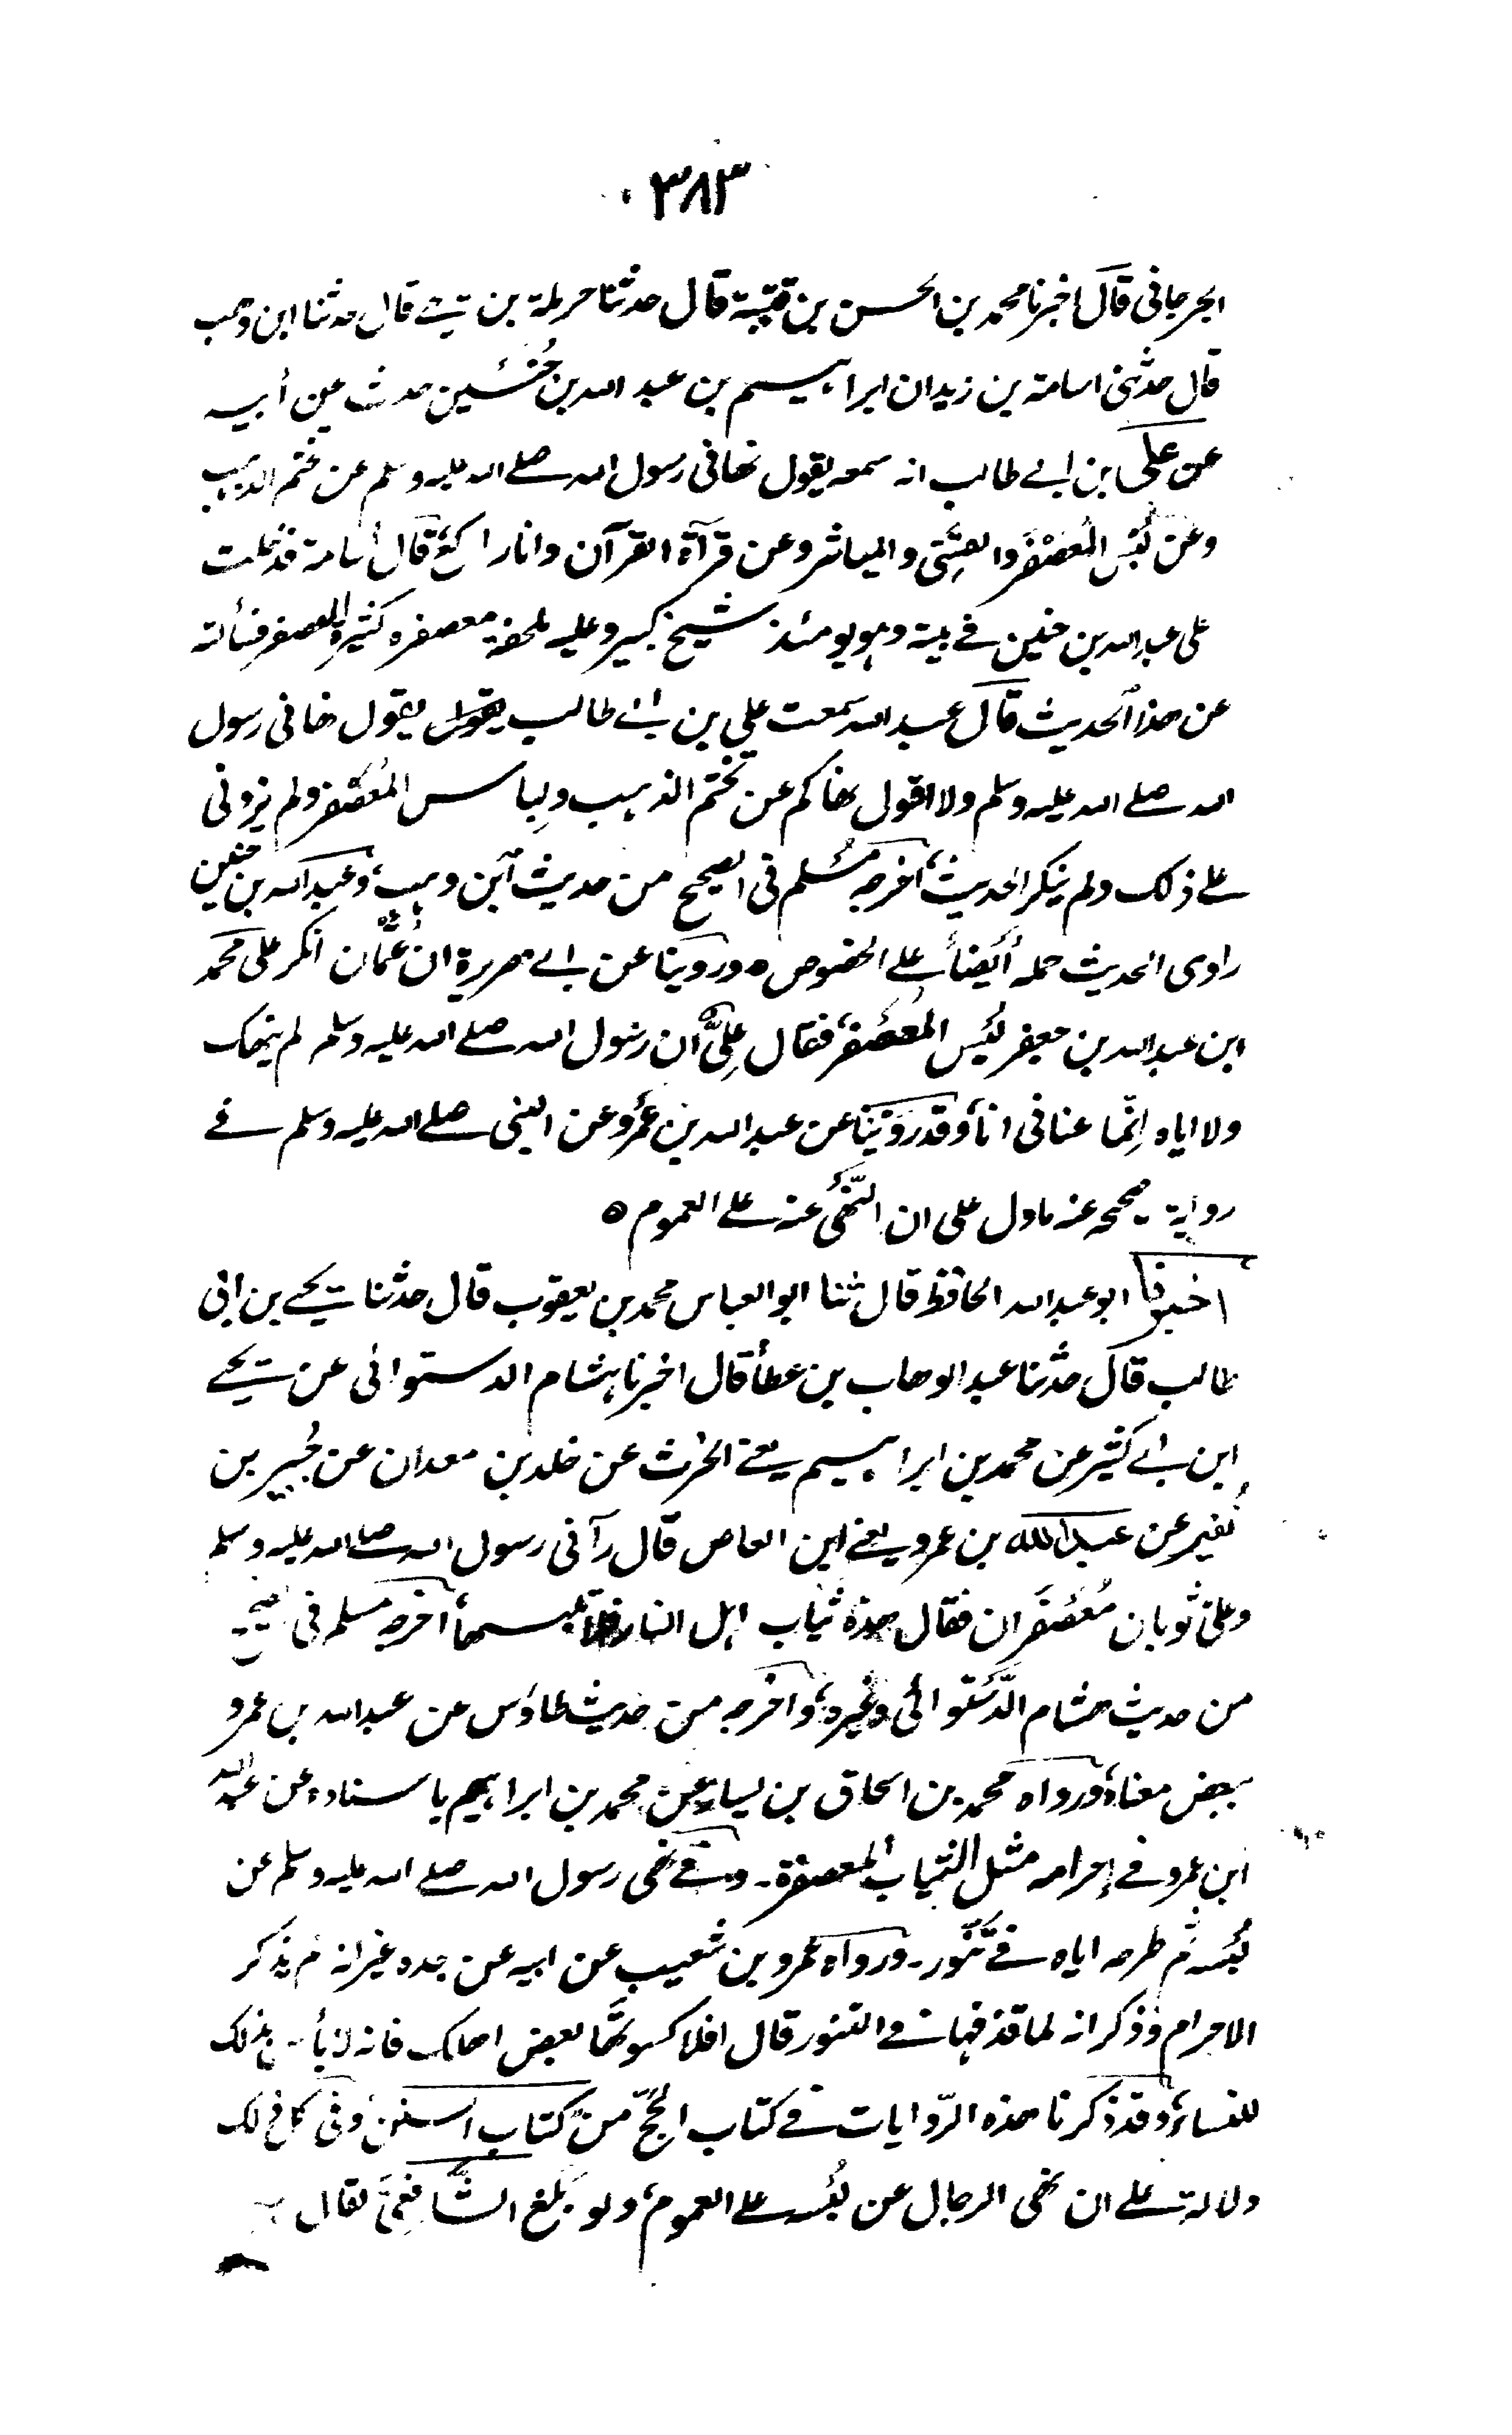 ٣٨٣
الجرجانى قال اخبرنا محمد بن الحسن بن قتيبة قال حدثنا حرملة بن يحيے قال حدثنا ابن وهب
قال حدثنى اسامة بن زيد ان ابراهيم بن عبد الله بن حُنَين حدث عن أبيه
عن على بن ابے طالب انه سمعه يقول نهانى رسول الله صلے الله عليه وسلم عن تختم الذهب
وعن لُبْس المُعَصْفَر والقسِّى والمياثر وعن قرآة القرآن وانا راكع قال أسامة فدخلت
على عبدالله بن حنين فے بيته وهو يومئذ شيخ كبير وعليه ملحفة معصفره كثيرة العصفر فسألته
عن هذا الحديث قال عبد الله سمعت على بن ابے طالب يقول نهانى رسول
الله صلے الله عليه وسلم ولا اقول نهاكم عن تختم الذهب ولباس المُعَصْفَر ولم يزدنى
علے ذلك ولم ينكر الحديث، أخرجه مُسْلم فى الصحيح من حديث ابن وهب، وعبدالله بن حنين
راوى الحديث حمله أيضاً علے الخصوص ٥ وروينا عن ابے هريرة ان عُثمان انكر على محمد
ابن عبدالله بن جعفر لُبْس المُعَصْفَر، فقال علىّ ان رسول الله صلے الله عليه وسلم لم ينهك
ولا اياه اِنّما عنانى انا، وقد رَوَيْنا عن عبدالله بن عَمْرو عن النبى صلے الله عليه وسلم فے
رواية صحيحه عنه ما دل على ان النّهْىَ عنه علے العموم ٥
اخبرنا ابو عبدالله الحافظ قال ثنا ابو العباس محمد بن يعقوب قال حدثنا يحيے بن ابى
طالب قال حدثنا عبد الوهاب بن عطأ قال اخبرنا هشام الدستوائى عن يحيے
ابن ابے كثير عن محمد بن ابراهيم يعنے الحرث عن خلد بن معدان عن جُبير بن
نُفير عن عبدالله بن عمرو يعنے ابن العاص قال رآنى رسول الله صلے الله عليه وسلم
وعلىّ ثوبان مُعَصْفَران فقال هذه ثياب اهل النار فلا تلبسها، أخرجه مسلم فى الصحيح
من حديث هشام الدَّسْتوائى وغيره، وأخرجه من حديث طاؤس عن عبدالله بن عمرو
ببعض معناه، ورواه محمد بن اسحاق بن يسار عن محمد بن ابراهيم باسناده عن عبدالله
ابن عمرو فے إحرامه مثل الثياب المعصفرة۔ وفے نهى رسول الله صلے الله عليه وسلم عن
لُبْسه ثم طرحه اياه فے تَنُّور۔ ورواه عمرو بن شعيب عن ابيه عن جده غير انه لم يذكر
الاحرام وذكر انه لما قذفها فے التنور قال افلا كسوتَها بعض اهلك فانه لا بأس بذلك
للنساء، وقد ذكرنا هذه الرّوايات فے كتاب الحجّ من كتاب السنن، وفى كل ذلك
دلالة علے ان نهى الرجال عن لُبْسه علے العموم، ولو بَلَغ الشَّافِعِىَّ لقال به